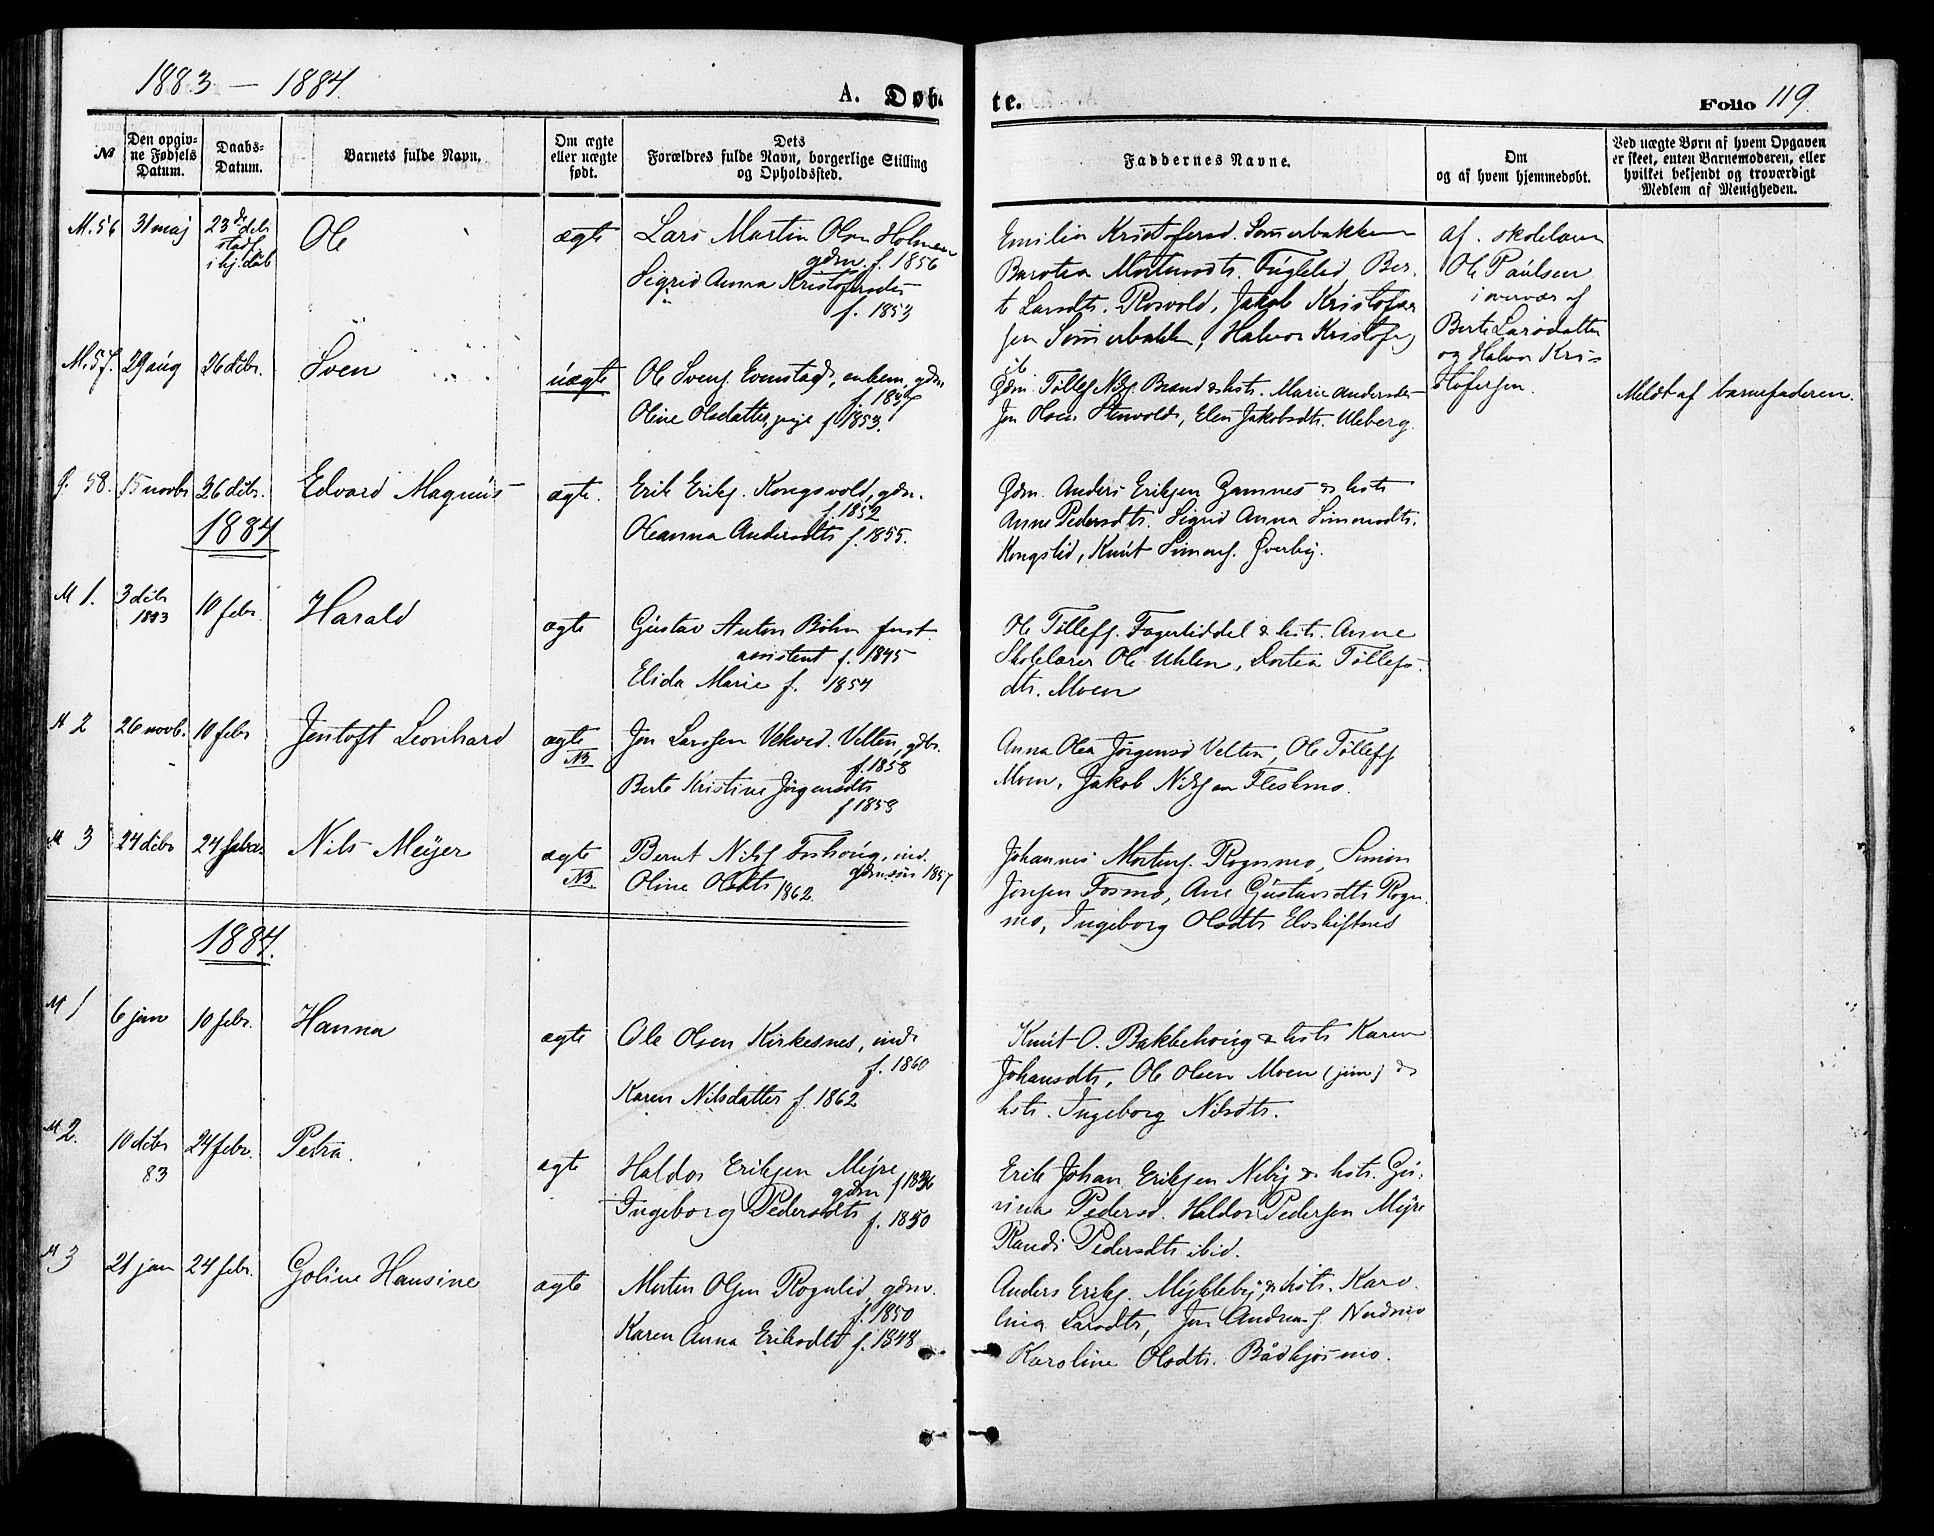 1883 – 1884.
A. Døb-
te.
Folio 119.
№
Den opgiv-
ne Fødsels
Datum.
Daabs-
Datum.
Barnets fulde Navn.
Om ægte
eller uægte
født.
Dets
Forældres fulde Navn, borgerlige Stilling
og Opholdssted.
Faddernes Navne.
Om
og af hvem hjemmedøbt.
Ved uægte Børn af hvem Opgaven
er skeet, enten Barnemoderen, eller
hvilket bekjendt og troværdigt
Medlem af Menigheden.
M. 56
31 maj
23de debr
stadf.
i hj.døb
Ole
ægte
Lars Martin Olsen Holmen
gdm. f. 1856
Sigrid Anna Kristofersdtr
f. 1853
Emilia Kristofersd. Sommerbakken
Barotea Mortensdtr. Fuglelid Ber-
te Larsdtr. Rosvold, Jakob Kristofer
sen Sommerbakken, Halvor Kristofersj
ib
af skolelærer
Ole Paulsen
i overvær af
Berte Larsdatter
og Halvor Kri-
stofersen.
M. 57.
29 aug
26 debr.
Sven
uægte
Ole Svens. Evenstad, enkem, gdm
f. 1847
Oline Olsdatter, pige f. 1853.
Gdm. Tollef Nils. Brand & hstr. Marie Andersdtr
Jon Olsen Stenvold, Elen Jakobsdtr. Uleberg.
Meldt af barnefaderen.
58.
15 novbr
26 debr.
Edvard Magnus
ægte.
Erik Eriks. Kongsvold, gdm.
f. 1852
Oleanna Andersdtr f. 1855.
Gdm. Anders Eriksen Zamnes & hstr
Anne Pedersdtr. Sigrid Anna Simonsdtr.
Kongslid, Knut Simons. Øverby.
1884
M 1.
3 debr
1883
10 febr
Harald
ægte
Gustav Anton Bøhn forst.
assistent f. 1845
Elida Marie f. 1854
Ole Tollefs. Fagerliddal & hstr. Anne
Skolelærer Ole Uhlen, Dortea Tollefs-
dtr. Moen
M 2
26 novb.
10 febr
Jentoft Leonhard
ægte
NB
Jon Larssen Vekved. Velten, gdbr.
f. 1858
Berte Kristine Jørgensdtr
f 1853
Anna Olea Jørgensd Velten, Ole Tollefs
Moen, Jakob Nilsen Fleskmo.
M 3
24 debr
24 febr.
Nils Meyer
ægte
NB.
Bernt Nils. Foshoug, ind.
gdmsøn 1857
Oline Olsdtr 1862.
Johannes Mortens. Rognmo, Simon
Jonsen Fosmo, Ane Gustavsdtr Rogn-
mo, Ingeborg Olsdtr Elveskiftnes
1884.
M 1
6 jan
10 febr.
Hanna
ægte
Ole Olsen Kirkesnes, ind.
f. 1860
Karen Nilsdatter f. 1862
Knut O. Bakkehoug & hstr Karen
Johansdtr, Ole Olsen Moen (jun) &
hstr. Ingeborg Nilsdtr.
M 2.
10 debr
83
24 febr.
Petra.
ægte
Haldor Eriksen Mejre
gdm f 1836
Ingeborg Pedersdtr f. 1850
Erik Johan Eriksen Neby & hstr. Gu-
rina Pedersd. Haldor Pedersen Mejre
Randi Pedersdtr ibid.
M 3
21 jan
24 febr.
Goline Hansine
ægte
Morten Olsen Rognlid, gdm.
f. 1850
Karen Anna Eriksdtr f. 1848
Anders Eriks. Mykleby, & hstr. Karo-
lina Larsdtr, Jon Andreas. Nordmo
Karoline Olsdtr. Bådkjosmo.